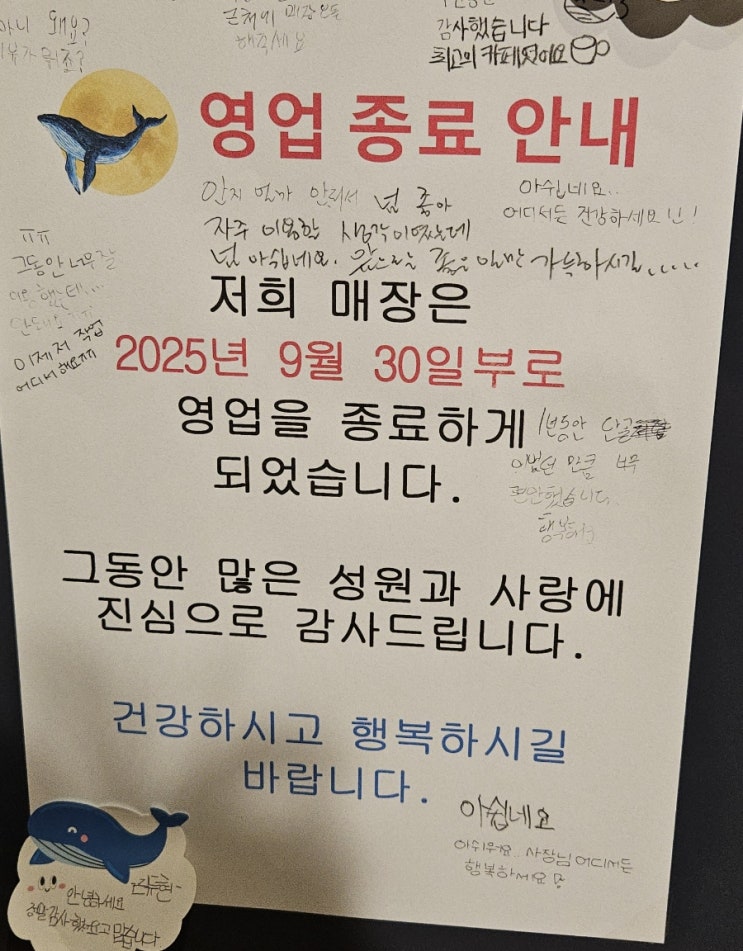 아니 왜요?
감사했습니다
최고의 카페였어요
영업 종료 안내
넘 좋아
아쉽네요..
어디서든 건강하세요
자주 이용할 생각이었는데
넘 아쉽네요. 앞으로는 좋은 일만 가득하시길.....
ㅠㅠ
그동안 너무 잘
이용했는데...
이제 저 작업
어디서 해요ㅠㅠ
저희 매장은
2025년 9월 30일부로
영업을 종료하게
되었습니다.
1년동안 단골
이었던 만큼 너무
편안했습니다
그동안 많은 성원과 사랑에
진심으로 감사드립니다.
건강하시고 행복하시길
바랍니다.
아쉽네요
아쉬워요.. 사장님 어디서든
행복하세요
안녕하세요
정말 감사했고 고맙습니다